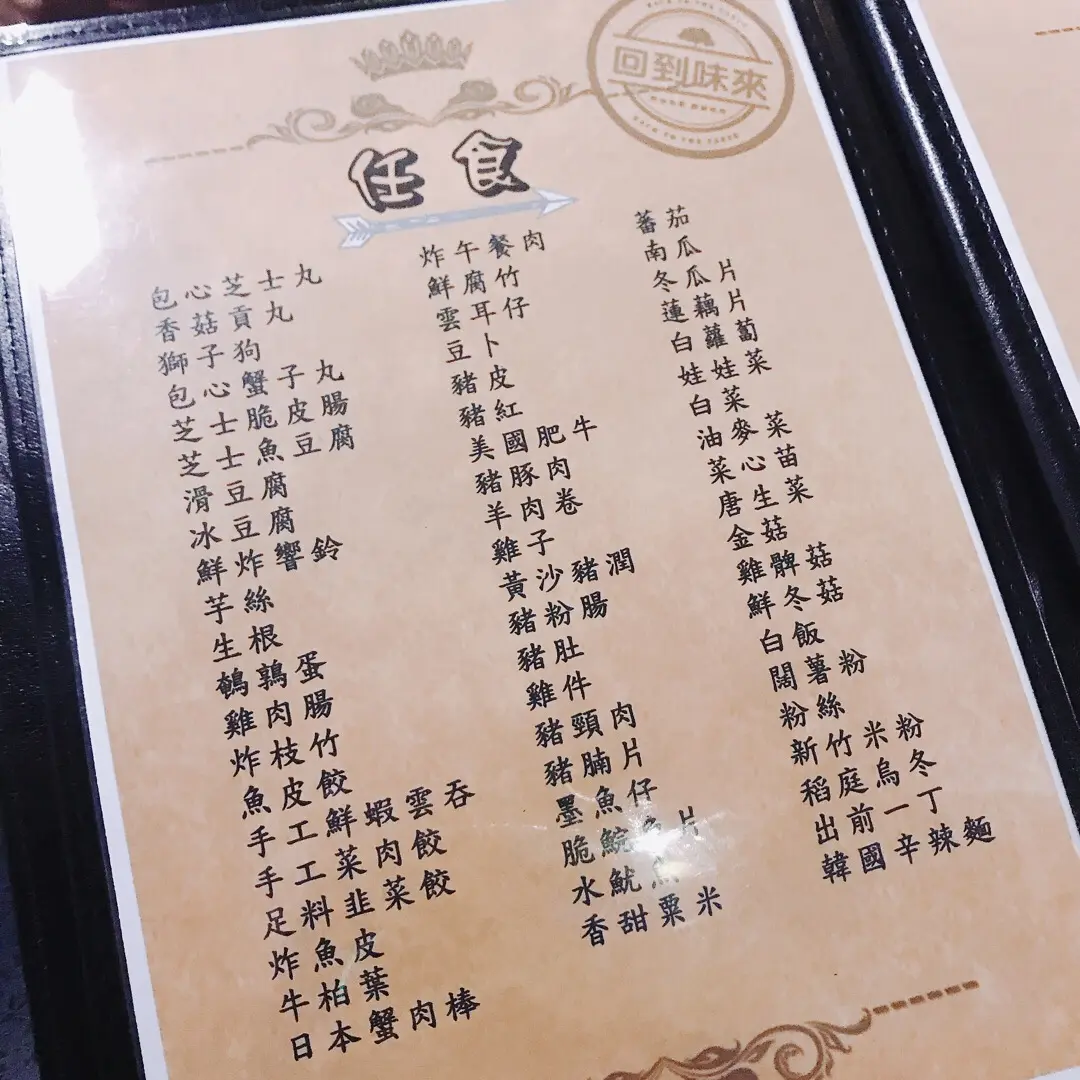 回到味來
BACK TO THE TASTE
任食
包心芝士丸
香菇貢丸
獅子狗
包心蟹子丸
芝士脆皮腸
芝士魚豆腐
滑豆腐
冰豆腐
鮮炸響鈴
芋絲
生根
鵪鶉蛋
雞肉腸
炸枝竹
魚皮餃
手工鮮蝦雲吞
手工菜肉餃
足料韭菜餃
炸魚皮
牛柏葉
日本蟹肉棒
炸午餐肉
鮮腐竹
雲耳仔
豆卜
豬皮
豬紅
美國肥牛
豬豚肉
羊肉卷
雞子
黃沙豬潤
豬粉腸
豬肚
雞件
豬頸肉
豬腩片
墨魚仔
脆鯇魚片
水魷魚
香甜粟米
蕃茄
南瓜
冬瓜片
蓮藕片
白蘿蔔
娃娃菜
白菜
油麥菜
菜心苗
唐生菜
金菇
雞髀菇
鮮冬菇
白飯
闊薯粉
粉絲
新竹米粉
稻庭烏冬
出前一丁
韓國辛辣麵